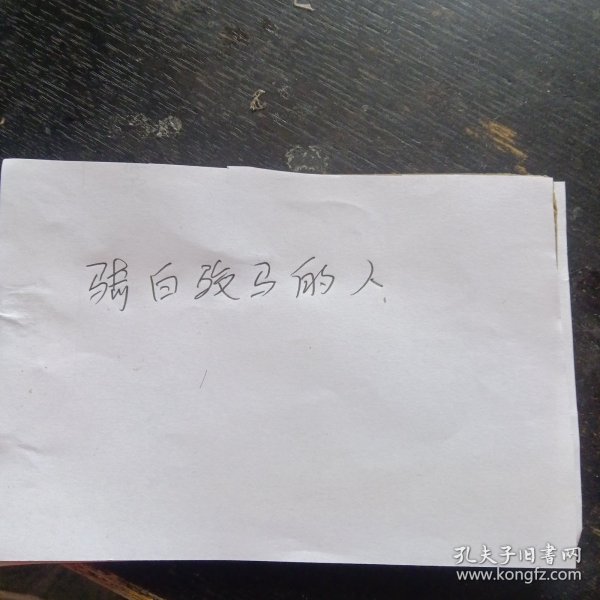 骑白骏马的人
孔夫子旧書网
www.kongfz.com